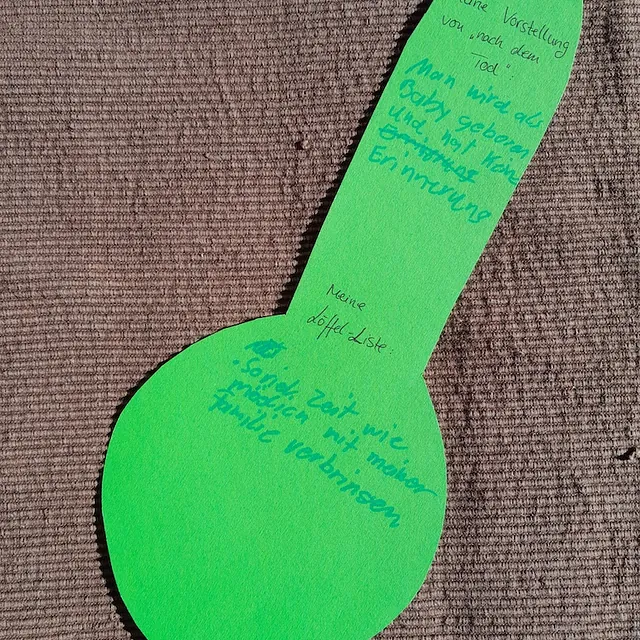 eine Vorstellung
von "nach dem
Tod":
Man wird als
Baby geboren
und hat kein
Erinnerung
Meine
Löffel-Liste:
Zeit wie
möclich mit meiner
familie verbrinsen